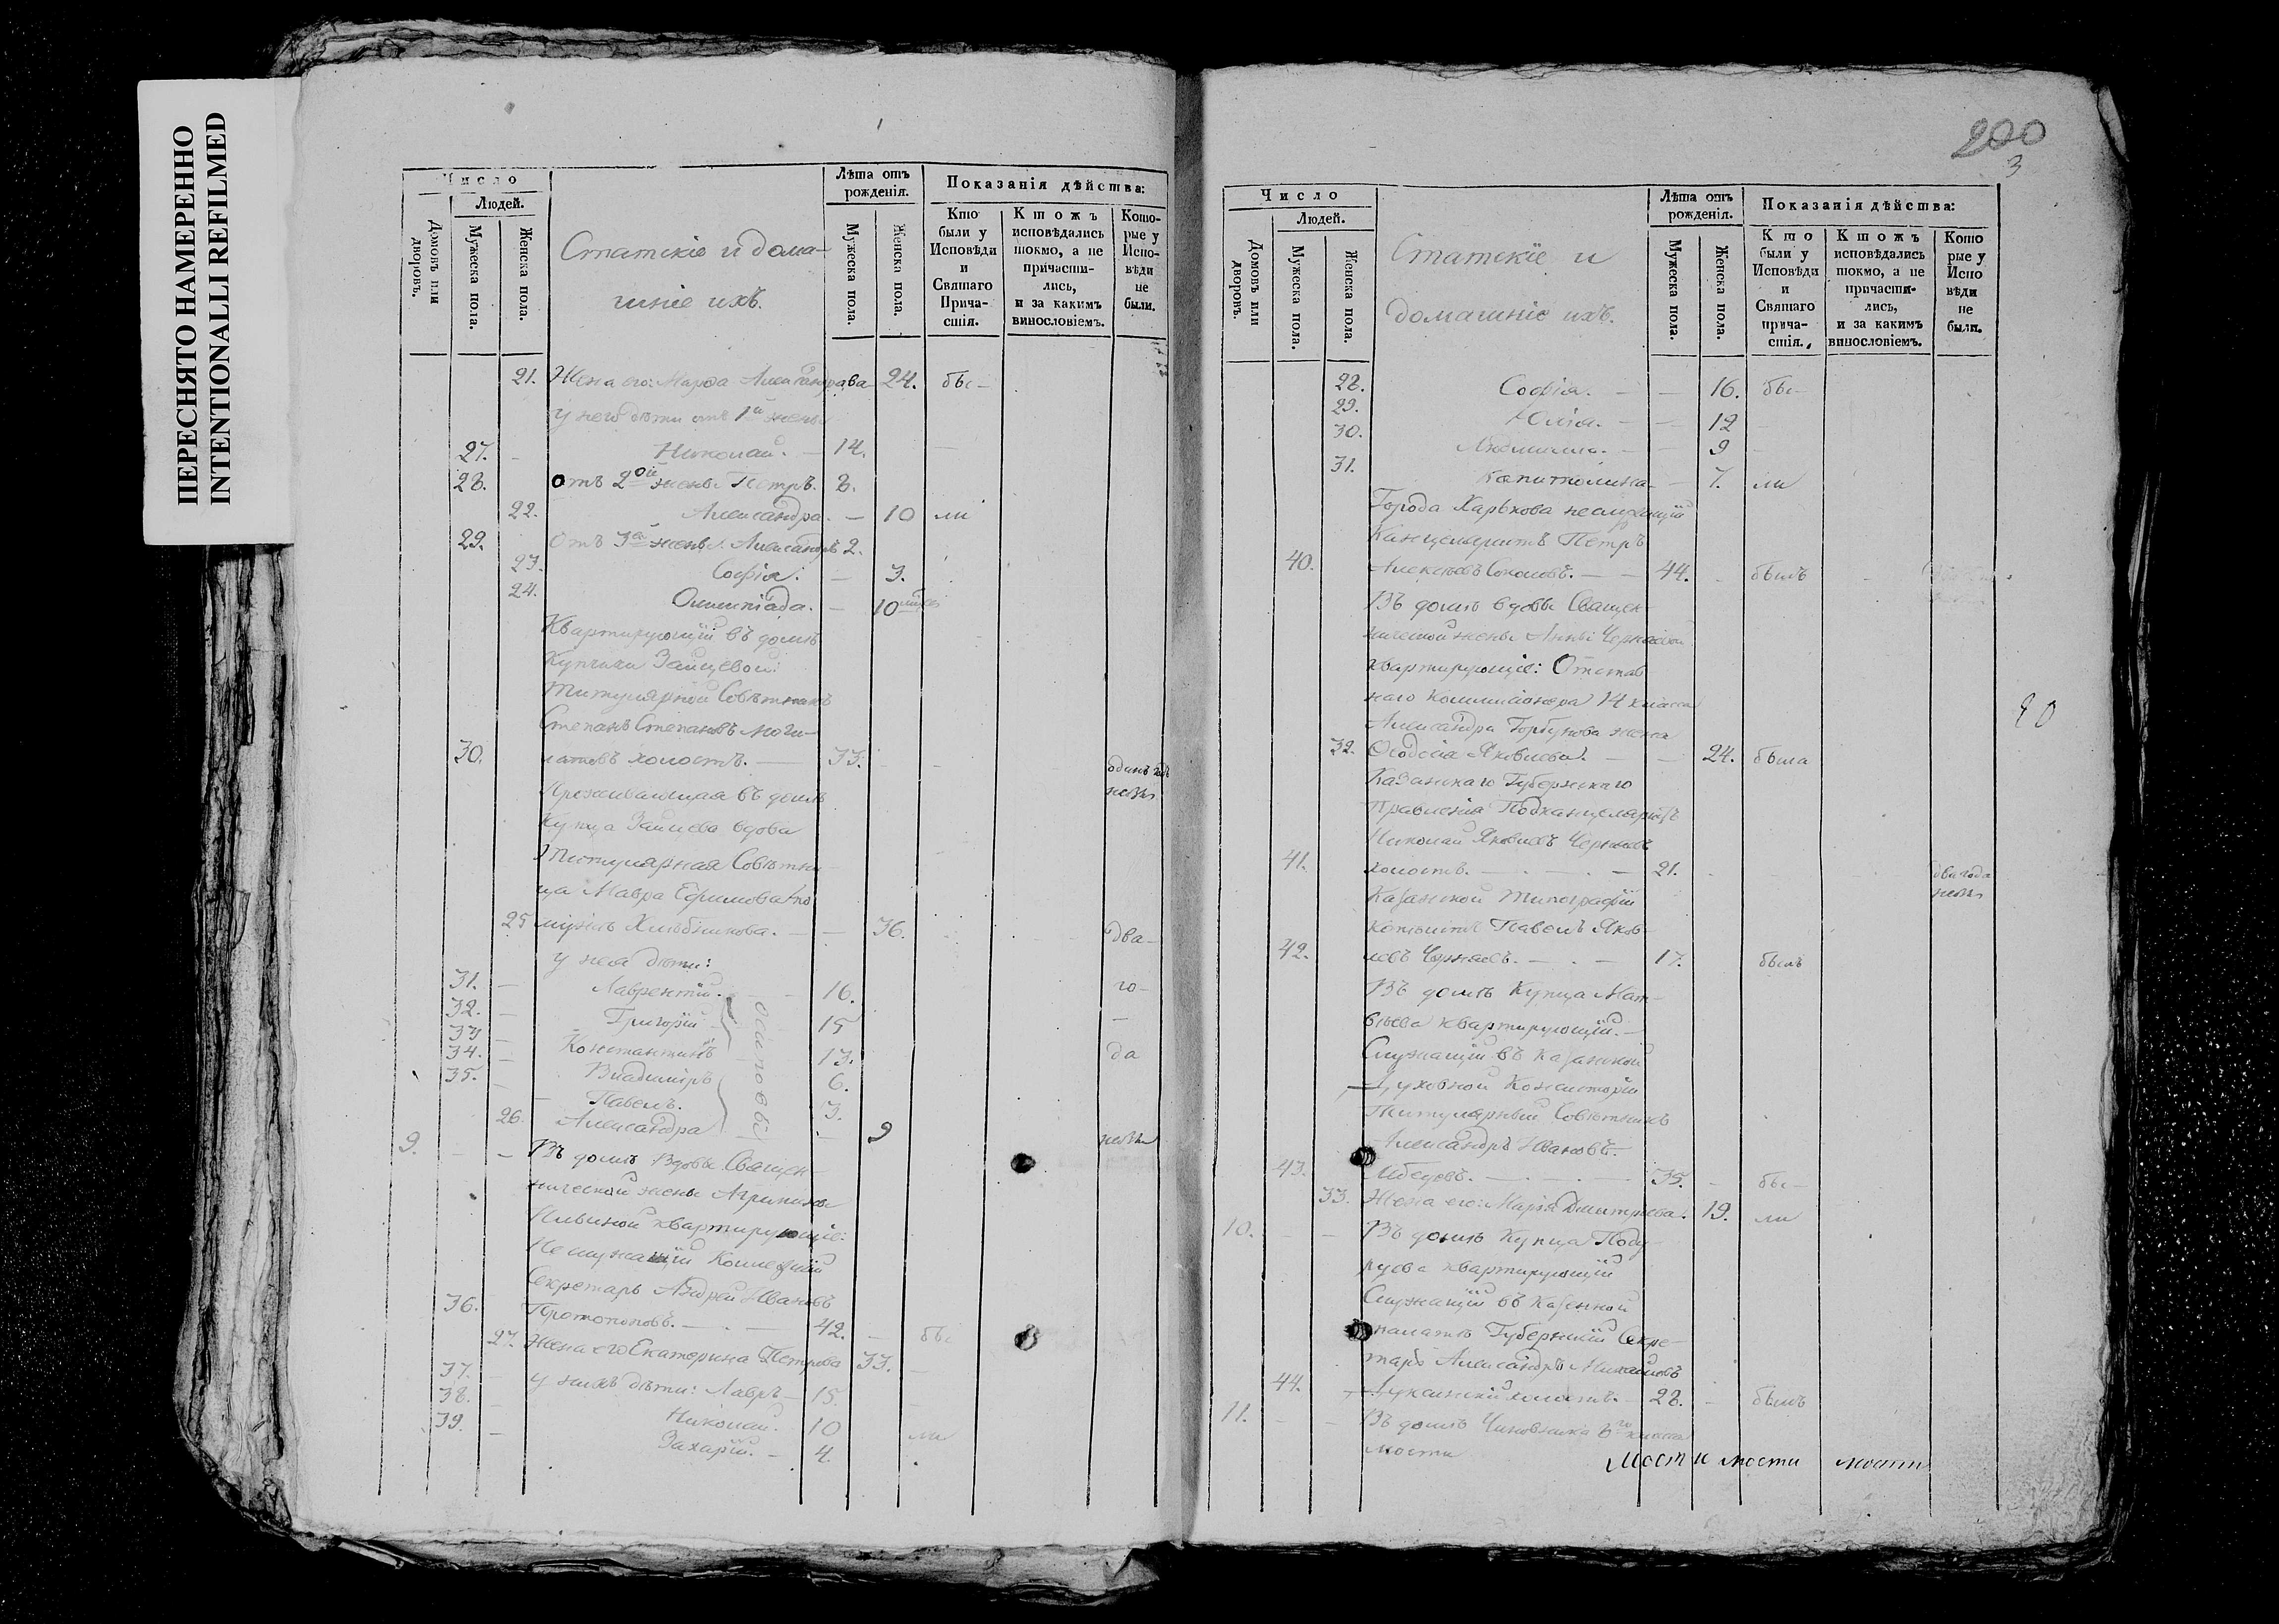 ПЕРЕСНЯТО НАМЕРЕННО
INTENTIONALLI REFILMED
Число
Людей.
Домовъ или дворовъ.
Мужеска пола.
Женска пола.
Статскіе и дома-
шніе ихъ.
Лѣта отъ рожденія.
Мужеска пола.
Женска пола.
Показанія дѣйства:
Кто были у Исповѣди и Святаго Прича-стія.
Ктожъ исповѣдались токмо, а не причасти-лись, и за какимъ винословіемъ.
Кото-рые у Испо-вѣди не были.
21. Жена его: Марѳа Александрова 24. бы-
у него дѣти отъ 1й жены
27. Николай. — 14.
28. отъ 2ой жены Петръ. 8.
22. Александра. — 10 ли
29. Отъ 3й жены Александръ 2.
23. Софія. — 3.
24. Олимпіада. — 10
Квартирующій въ домѣ
Купчихи Зайцевой:
Титулярной Совѣтникъ
Степанъ Степановъ Моги-
30. латовъ холостъ. — 33. одинъ годъ
Проживающая въ домѣ
Купца Зайцева вдова
Титулярная Совѣтни-
ца Мавра Ефимова по
25 мужѣ Хлѣбникова. — 36. два-
у нея дѣти:
31. Лаврентій. 16. го-
32. Григорій 15
33 Константинъ 13. да
34. Владиміръ 6.
35. Павелъ. 3.
26. Александра 9
9. Въ домѣ вдовы Священ-
нической жены Агрипины
Ильиной квартирующіе:
Неслужащій Коллежскій
Секретарь Андрей Ивановъ
36. Протопоповъ. — 42. бы
27. Жена его Екатерина Петрова 33.
37. у нихъ дѣти: Лавръ — 15.
38. Николай. 10
39. Захарій. — 4. ли
200
3
Число
Людей.
Домовъ или дворовъ.
Мужеска пола.
Женска пола.
Статскіе и
домашніе ихъ.
Лѣта отъ рожденія.
Мужеска пола.
Женска пола.
Показанія дѣйства:
Кто были у Исповѣди и Святаго прича-стія.
Ктожъ исповѣдались токмо, а не причасти-лись, и за какимъ винословіемъ.
Кото рые у Испо вѣди не были.
28. Софія. — 16. бы-
29. Юлія. — 12
30. — 9
31. Капитолина. — 7. ли
Города Харькова неслужащій
Канцеляристъ Петръ
40. Алексѣевъ Соколовъ. — 44. былъ
Въ домѣ вдовы Священ-
нической жены Анны Черняевой
квартирующіе: Отстав-
наго коммисіонера 14 класса
Александра Горбунова жена
32. Ѳеодосія Яковлева. — 24. была
Казанскаго Губернскаго
Правленія Подканцеляристъ
Николай Яковлевъ Черняевъ
41. холостъ. — 21. два года
Казанской Типографіи
копіистъ Павелъ Яков-
42. левъ Черняевъ. — 17. былъ
Въ домѣ Купца Мат-
вѣева квартирующій.
Служащій въ Казанской
Духовной Консисторіи
Титулярный Совѣтникъ
Александръ Ивановъ
43. Лебедевъ. — 35. бы-
33. Жена его: Марія Дмитріева. 19. ли
10. Въ домѣ Купца Поду-
руева квартирующій
Служащій въ Казенной
палатѣ Губернскій Секре-
тарь Александръ Михайловъ
44. холостъ. 28. былъ
11. Въ домѣ Чиновника 6го класса
мости мости мости мости